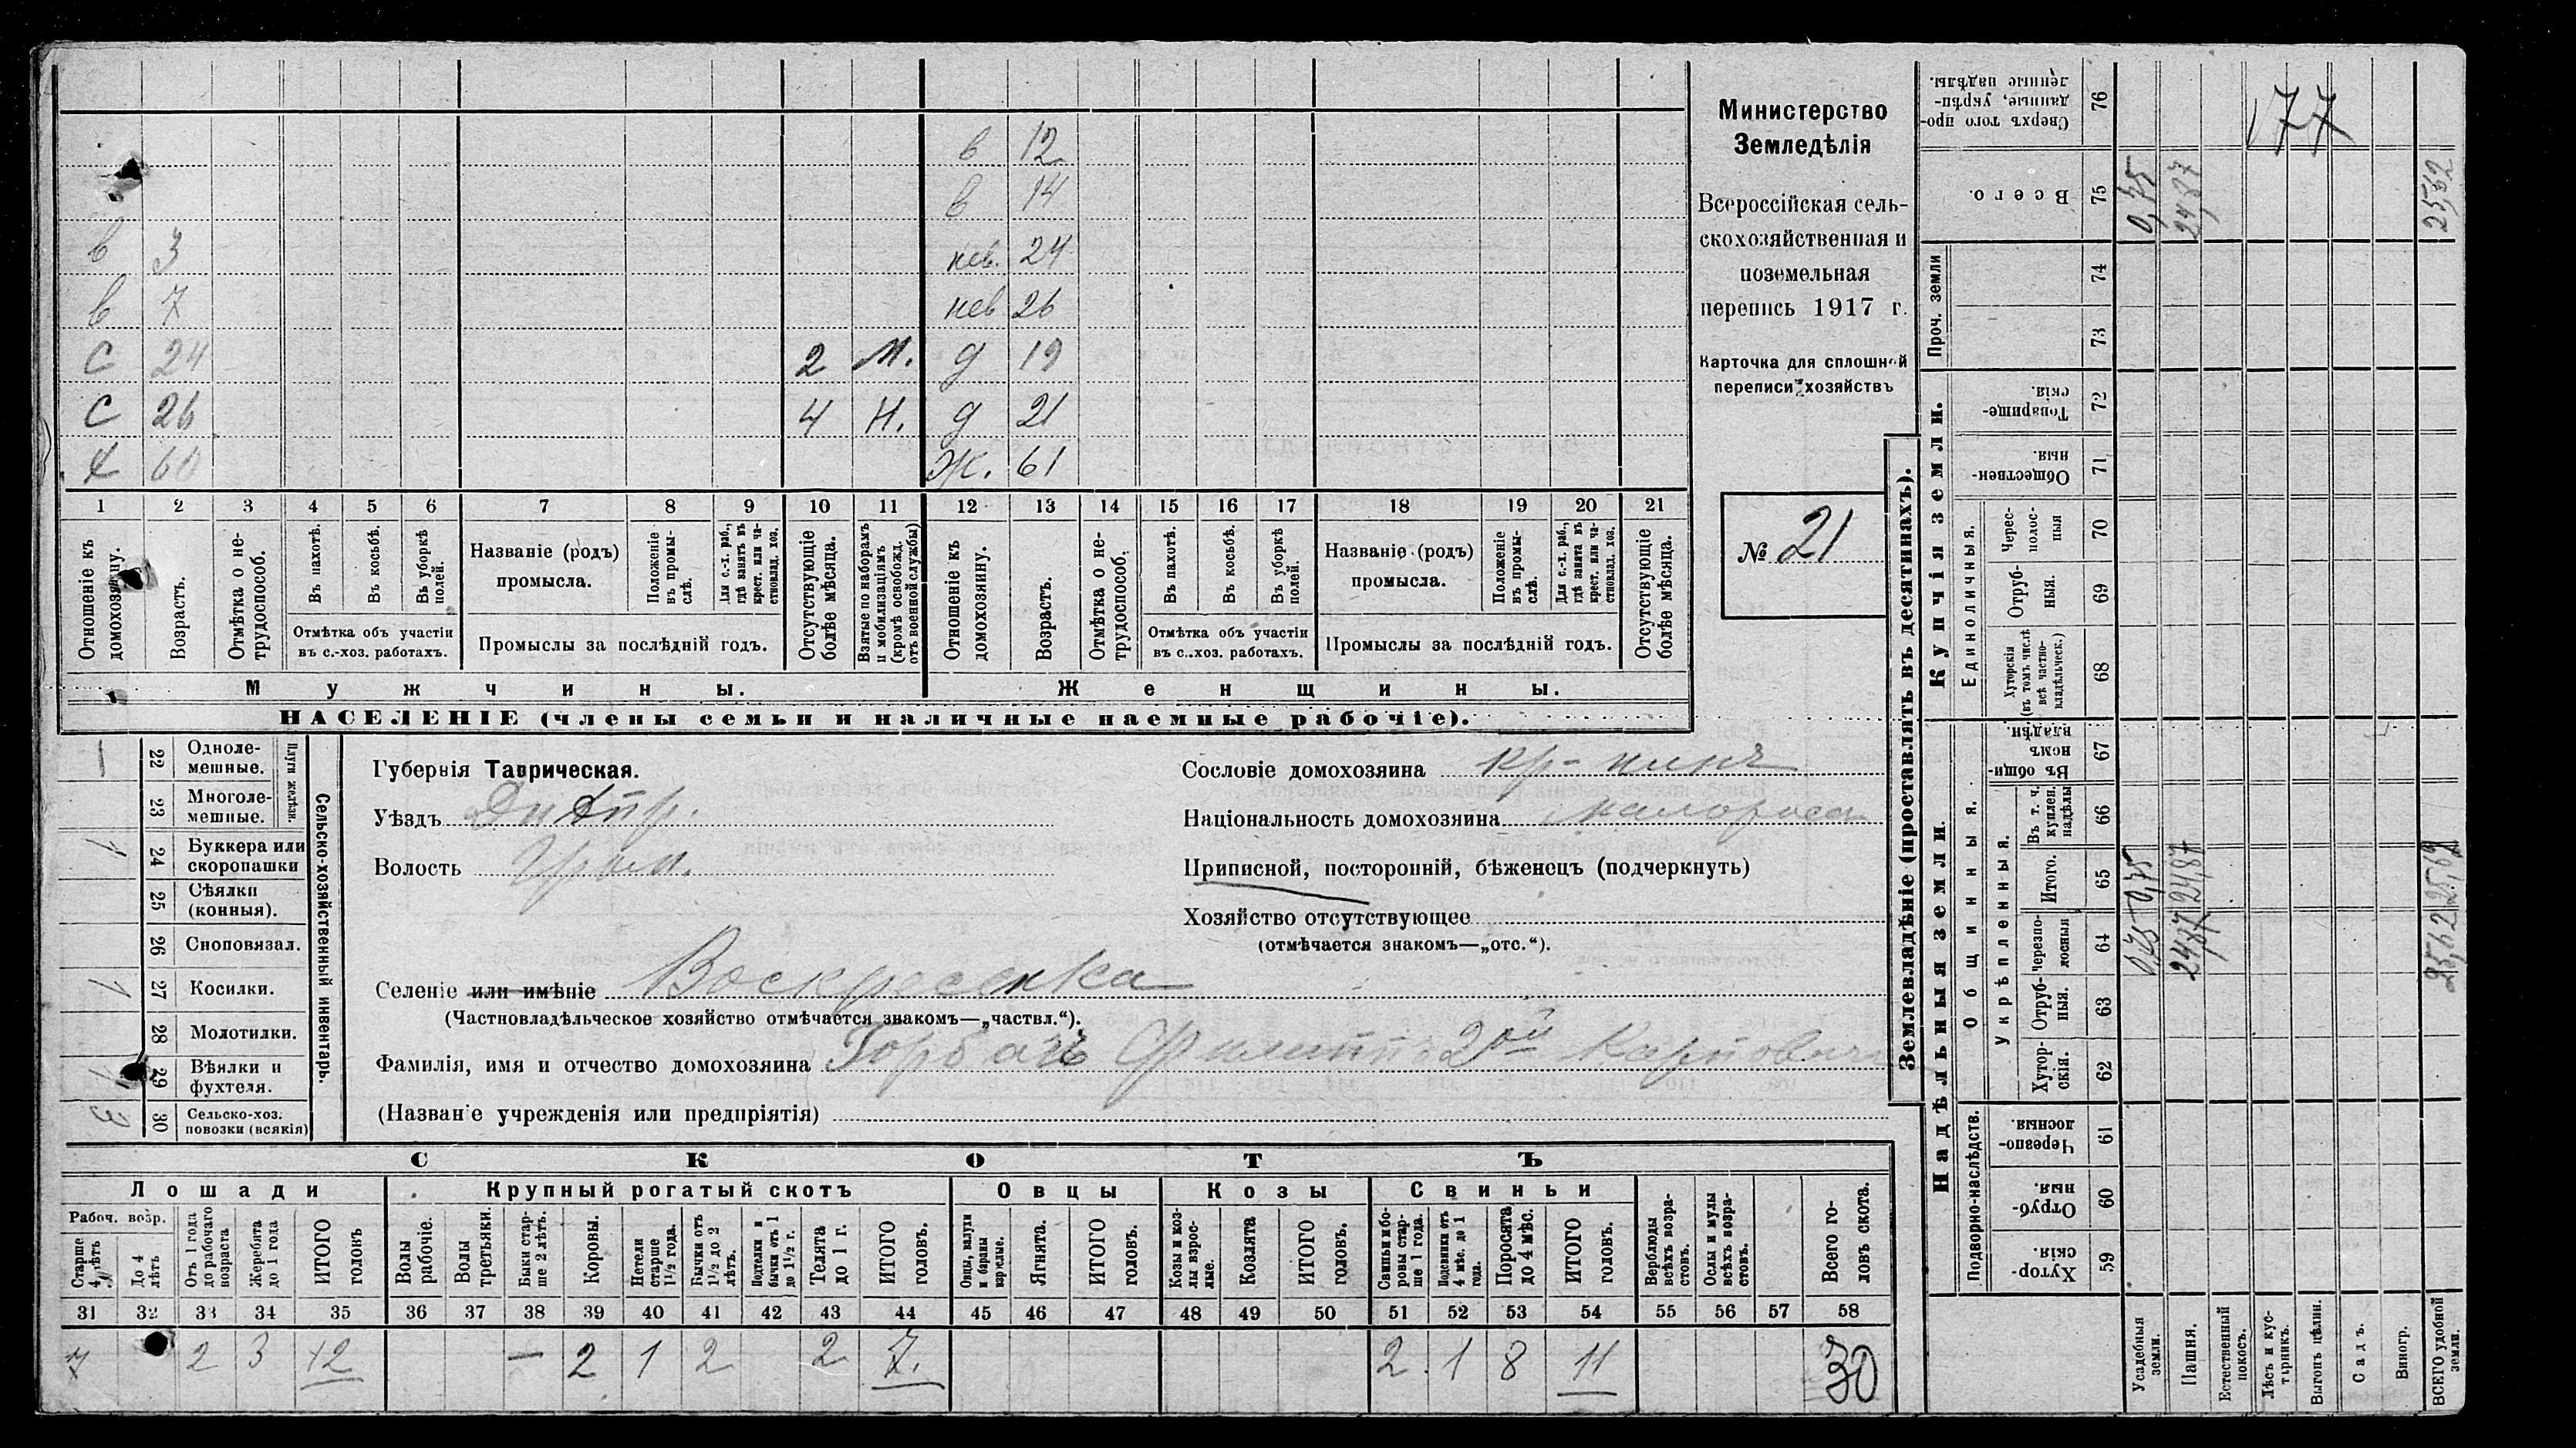 в 12
в 14
в 3 нев. 24
в 7 нев 26
с 24 2 М. д 19
с 26 4 Н. д 21
х 60 Ж. 61
1 2 3 4 5 6 7 8 9 10 11 12 13 14 15 16 17 18 19 20 21
Отношеніе къ домохозяину.
Возрастъ.
Отмѣтка о не-
трудоспособ.
Въ пахотѣ.
Въ косьбѣ.
Въ уборкѣ
полей.
Отмѣтка объ участіи
въ с.-хоз. работахъ.
Названіе (родъ)
промысла.
Положеніе
въ промы-
слѣ.
Для с.-х. раб.,
гдѣ занятъ въ
крест. или ча-
стновлад. хоз.
Промыслы за послѣдній годъ.
Отсутствующіе
болѣе мѣсяца.
Взятые по наборамъ
и мобилизаціямъ
(кромѣ освобожд.
отъ военной службы)
Отношеніе къ
домохозяину.
Возрастъ.
Отмѣтка о не-
трудоспособ.
Въ пахотѣ.
Въ косьбѣ.
Въ уборкѣ
полей.
Отмѣтка объ участіи
въ с.-хоз. работахъ.
Названіе (родъ)
промысла.
Положеніе
въ промы-
слѣ.
Для с.-х. раб.,
гдѣ занята въ
крест. или ча-
стновлад. хоз.
Промыслы за послѣдній годъ.
Отсутствующіе
болѣе мѣсяца.
Мужчины.
Женщины.
НАСЕЛЕНІЕ (члены семьи и наличные наемные рабочіе).
Министерство
Земледѣлія
Всероссійская сель-
скохозяйственная и
поземельная
перепись 1917 г.
Карточка для сплошной
переписи хозяйствъ
№ 21
Сельско-хозяйственный инвентарь.
Плуги желѣзн.
1 22 Одноле-
мешные.
23 Многоле-
мешные.
1 24 Буккера или
скоропашки
25 Сѣялки
(конныя).
26 Сноповязал.
1 27 Косилки.
28 Молотилки.
1 29 Вѣялки и
фухтеля.
3 30 Сельско-хоз.
повозки (всякія)
Губернія Таврическая.
Уѣздъ Днѣпр.
Волость
Селеніе или имѣніе Воскресенка
(Частновладѣльческое хозяйство отмѣчается знакомъ—„частвл.“).
Фамилія, имя и отчество домохозяина Горбачъ Филиппъ 2ой Карповичъ
(Названіе учрежденія или предпріятія)
Сословіе домохозяина кр-нинъ
Національность домохозяина малоросс
Приписной, посторонній, бѣженецъ (подчеркнуть)
Хозяйство отсутствующее
(отмѣчается знакомъ—„отс.“).
СКОТЪ
Лошади
Крупный рогатый скотъ
Овцы
Козы
Свиньи
Рабоч. возр.
Старше
4 лѣтъ
До 4
лѣтъ
Отъ 1 года
до рабочаго
возраста
Жеребята
до 1 года
ИТОГО
головъ
Волы
рабочіе.
Волы
третьяки.
Быки стар-
ше 2 лѣтъ.
Коровы.
Нетели
старше
1½ года.
Бычки отъ
1½ до 2
лѣтъ.
Подтелки и
бычки отъ 1
до 1½ г.
Телята
до 1 г.
ИТОГО
головъ.
Овцы, валухи
и бараны
взрослые.
Ягнята.
ИТОГО
головъ.
Козы и коз-
лы взрос-
лые.
Козлята
ИТОГО
головъ.
Свиньи и бо-
ровы стар-
ше 1 года.
Подсвинки отъ
4 мѣс. до 1
года.
Поросята
до 4 мѣс.
ИТОГО
головъ.
Верблюды
всѣхъ возра-
стовъ.
Ослы и мулы
всѣхъ возра-
стовъ.
Всего го-
ловъ скота.
31 32 33 34 35 36 37 38 39 40 41 42 43 44 45 46 47 48 49 50 51 52 53 54 55 56 57 58
7 2 3 12 — 2 1 2 2 7. 2 1 8 11 30
Землевладѣніе (проставлять въ десятинахъ).
Купчія земли.
Надѣльныя земли.
Проч. земли
Единоличныя.
Общинныя.
Укрѣпленныя.
Подворно-наслѣдств.
Сверхъ того про-
данные, укрѣп-
ленные надѣлы.
76
177
Всего.
75 0,75 24,87 25,62
74
73
Товарище-
скія.
72
Обществен-
ныя.
71
Черес-
полос-
ныя
70
Отруб-
ныя.
69
Хуторскія
(въ томъ числѣ
всѣ частно-
владѣльческ.)
68
Въ общин-
номъ
владѣн.
67
Въ т. ч.
куплен.
надѣлы
66
Итого.
65 0,75 24,87 25,62
Черезпо-
лосныя
64 0,75 24,87 25,62
Отруб-
ныя.
63
Хутор-
скія.
62
Черезпо-
лосныя.
61
Отруб-
ныя.
60
Хутор-
скія.
59
Усадебныя
земли.
Пашня.
Естественный
покосъ.
Лѣсъ и кус-
тарникъ.
Выгонъ цѣлин.
Садъ.
Виногр.
ВСЕГО удобной
земли.